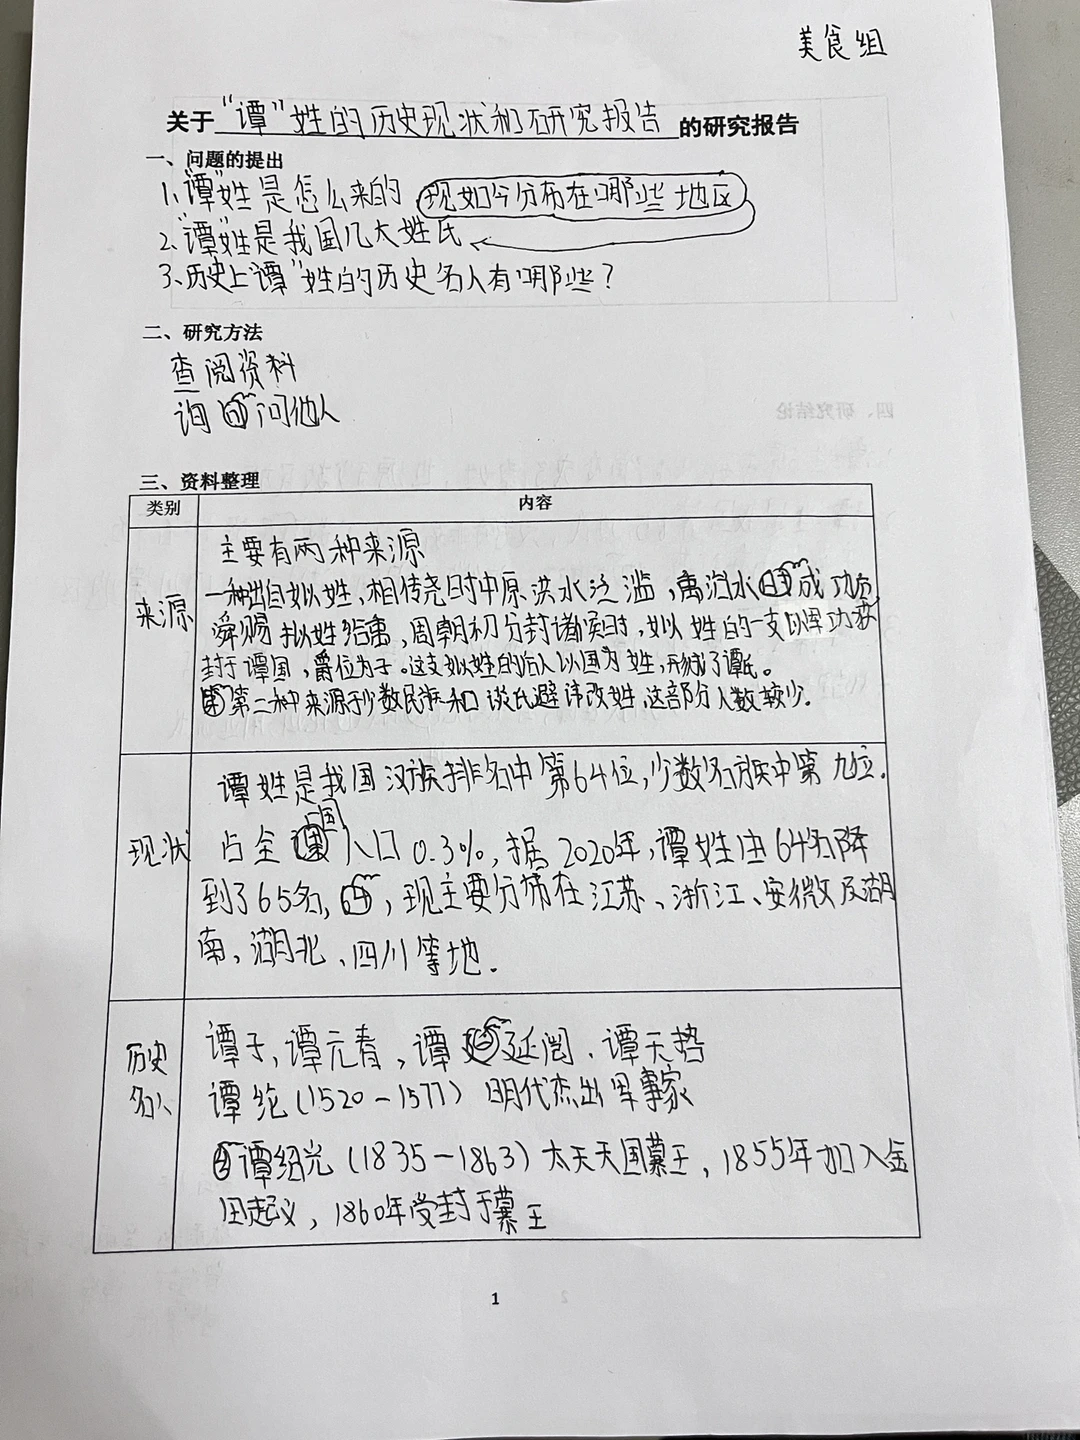 美食组
关于"谭"姓的历史现状和研究报告的研究报告
一、问题的提出
1."谭"姓是怎么来的 现如今分布在哪些地区
2."谭"姓是我国几大姓氏
3.历史上谭"姓的历史名人有哪些?
二、研究方法
查阅资料
询问他人
三、资料整理
类别 内容
来源
主要有两种来源
一种出自姒姓,相传尧时中原洪水泛滥,禹治水成功后
舜赐姒姓给禹,周朝初分封诸侯时,姒姓的一支以军功获
封于谭国,爵位为子。这支姒姓的后人以国为姓,形成了谭氏。
第二种来源于少数民族和谈氏避讳改姓,这部分人数较少.
现状
谭姓是我国汉族排名中第64位,少数名族中第九位.
占全国人口0.3%,据2020年,谭姓由64名降
到了65名,,现主要分布在江苏、浙江、安微及湖
南,湖北、四川等地.
历史名人
谭子,谭元春,谭延闿.谭天势
谭纶(1520-1577)明代杰出军事家
谭绍光(1835-1863)太天天国慕王,1855年加入金
田起义,1860年受封于慕王
1